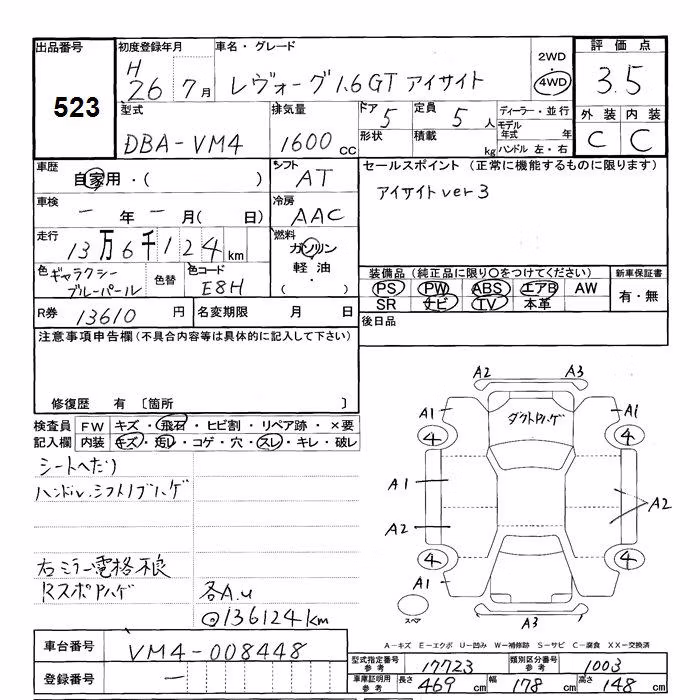 出品番号
523
初度登録年月
H
26 7月
車名・グレード
レヴォーグ1.6GT アイサイト
2WD
・
4WD
評価点
3.5
外装 内装
C C
型式
DBA-VM4
排気量
1600 cc
ドア 5
形状
定員 5 人
積載 kg
ディーラー・並行
モデル年式 年
ハンドル 左・右
車歴
自家用・( )
シフト
AT
セールスポイント(正常に機能するものに限ります)
アイサイトver3
車検
ー 年 ー 月( 日)
冷房
AAC
走行
13万6千124km
燃料
ガソリン
・
軽油
・
( )
色
ギャラクシー
ブルーパール
色替
色コード
E8H
装備品(純正品に限り○をつけてください)
PS PW ABS エアB AW
SR ナビ TV 本革
新車保証書
有・無
R券 13610 円
名変期限 月 日
後日品
注意事項申告欄(不具合内容等は具体的に記入して下さい)
修復歴 有 〔箇所 〕
検査員
記入欄
FW キズ・飛石・ヒビ割・リペア跡・×要
内装 キズ・汚レ・コゲ・穴・スレ・キレ・破レ
シートヘたり
ハンドル、シフトノブハゲ
右ミラー電格不良
Rスポアハゲ
各A.u
◎136124km
A2 A3
A1 A1
ダクトハゲ
4 4
A1
A2 A2
4 4
A1
スペア
A3
A-キズ E-エクボ U-凹み W-補修跡 S-サビ C-腐食 XX-交換済
車台番号
VM4-008448
登録番号
ー
型式指定番号
参考
17723
類別区分番号
参考
1003
車庫証明用
参考
長さ 469 cm
幅 178 cm
高さ 148 cm